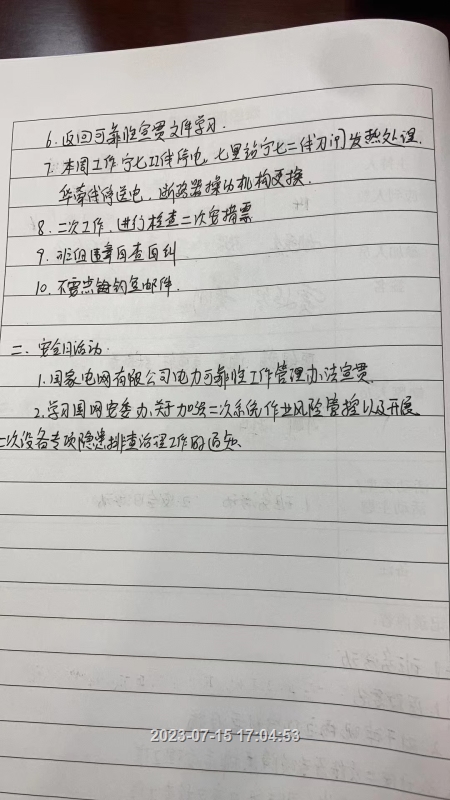 6. 返回可靠性宣贯文件学习.
7. 本周工作宁七II线停电, 七里站宁七二线刀闸发热处理.
华荣线停送电, 断路器操动机构更换.
8. 二次工作, 进行检查二次安措票
9. 班组违章自查自纠
10. 不要点击钓鱼邮件.
二. 安全日活动.
1. 国家电网有限公司电力可靠性工作管理办法宣贯.
2. 学习国网安委办关于加强二次系统作业风险管控以及开展
二次设备专项隐患排查治理工作的通知.
2023-07-15 17:04:53